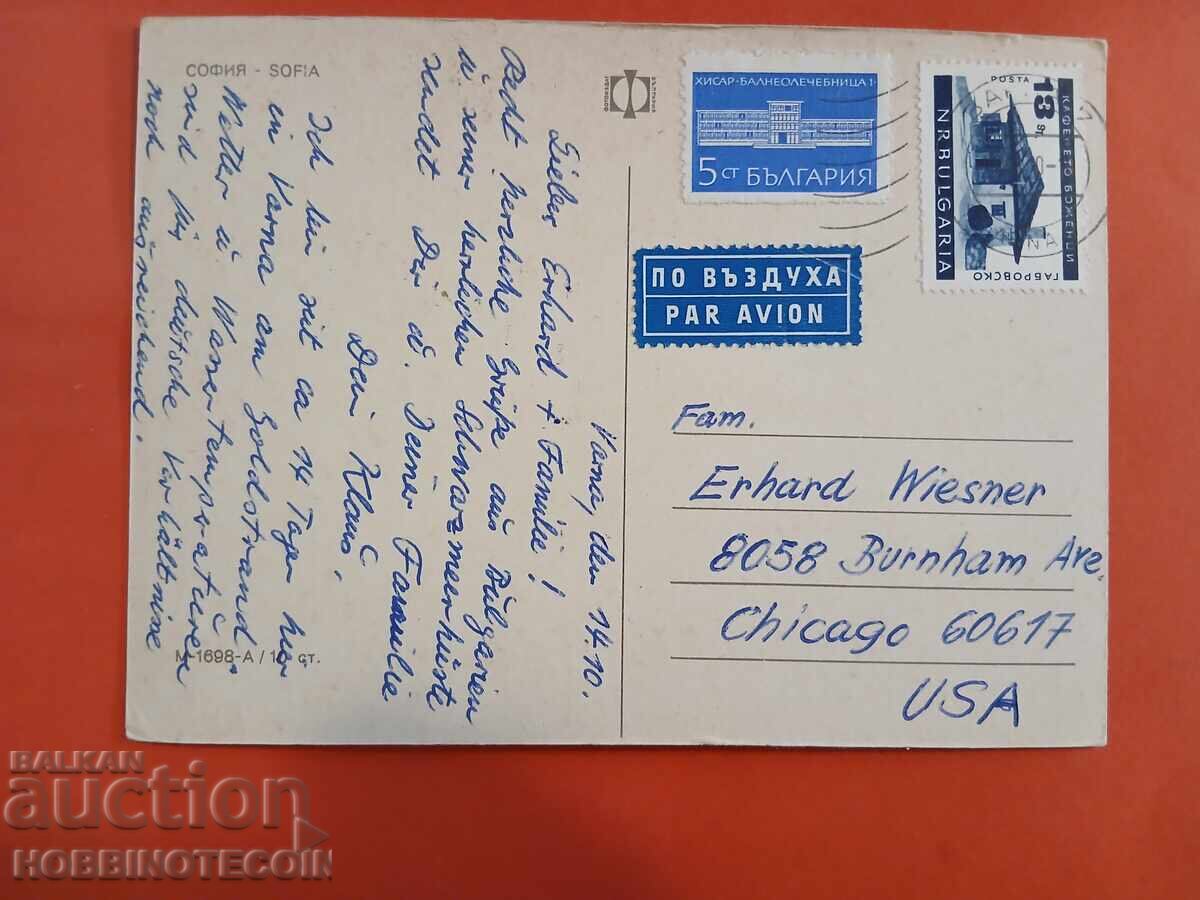 СОФИЯ - SOFIA
Varna, den 14.10.
Lieber Erhard + Familie!
Recht herzliche Grüße aus Bulgarien
u seiner herrlichen Schwarzmeerküste
sendet Dir u. Deiner Familie
Dein Klaus.
Ich bin seit ca 14 Tagen hier
in Varna am Goldstrand.
Wetter u. Wassertemperaturen
sind für deutsche Verhältnisse
noch ausreichend.
М-1698-А / ст.
ХИСАР-БАЛНЕОЛЕЧЕБНИЦА 1
5 СТ БЪЛГАРИЯ
POSTA
18 st.
КАФЕНЕТО БОЖЕНЦИ
NRBULGARIA
ГАБРОВСКО
ПО ВЪЗДУХА
PAR AVION
Fam.
Erhard Wiesner
8058 Burnham Ave.
Chicago 60617
USA
BALKAN
auction
HOBBINOTECOIN